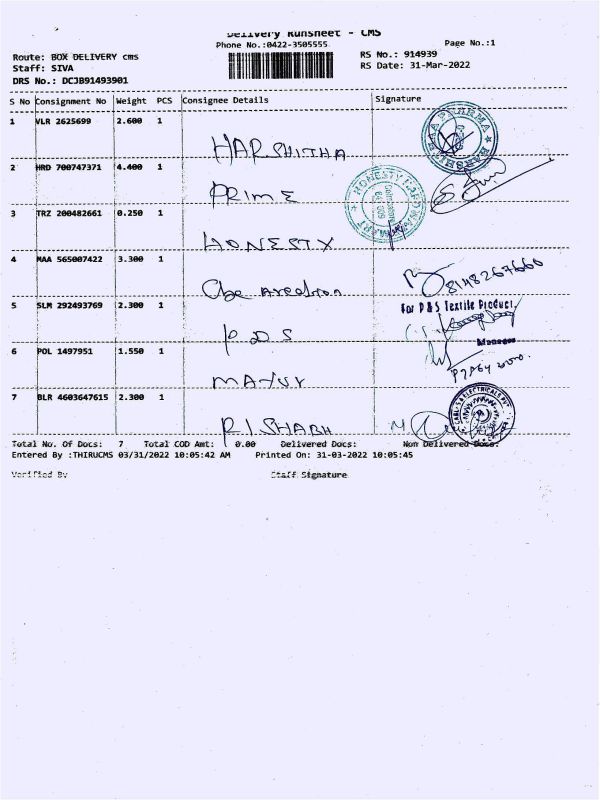 Delivery Runsheet - CMS
Phone No.:0422-3505555
Page No.:1
Route: BOX DELIVERY cms
RS No.: 914939
Staff: SIVA
RS Date: 31-Mar-2022
DRS No.: DCJB91493901
S No Consignment No Weight PCS Consignee Details Signature
1 VLR 2625699 2.600 1
HARSHITHA
2 HRD 700747371 4.400 1
PRIME
3 TRZ 200482661 0.250 1
HONESTY
4 MAA 565007422 3.300 1
Cbe
8148267660
5 SLM 292493769 2.300 1
For P & S Textile Product
PDS
Manager
6 POL 1497951 1.550 1
MAYUR
7 BLR 4603647615 2.300 1
RISHABH
Total No. Of Docs: 7 Total COD Amt: 0.00 Delivered Docs: Non Delivered Docs:
Entered By :THIRUCMS 03/31/2022 10:05:42 AM Printed On: 31-03-2022 10:05:45
Verified By Staff Signature